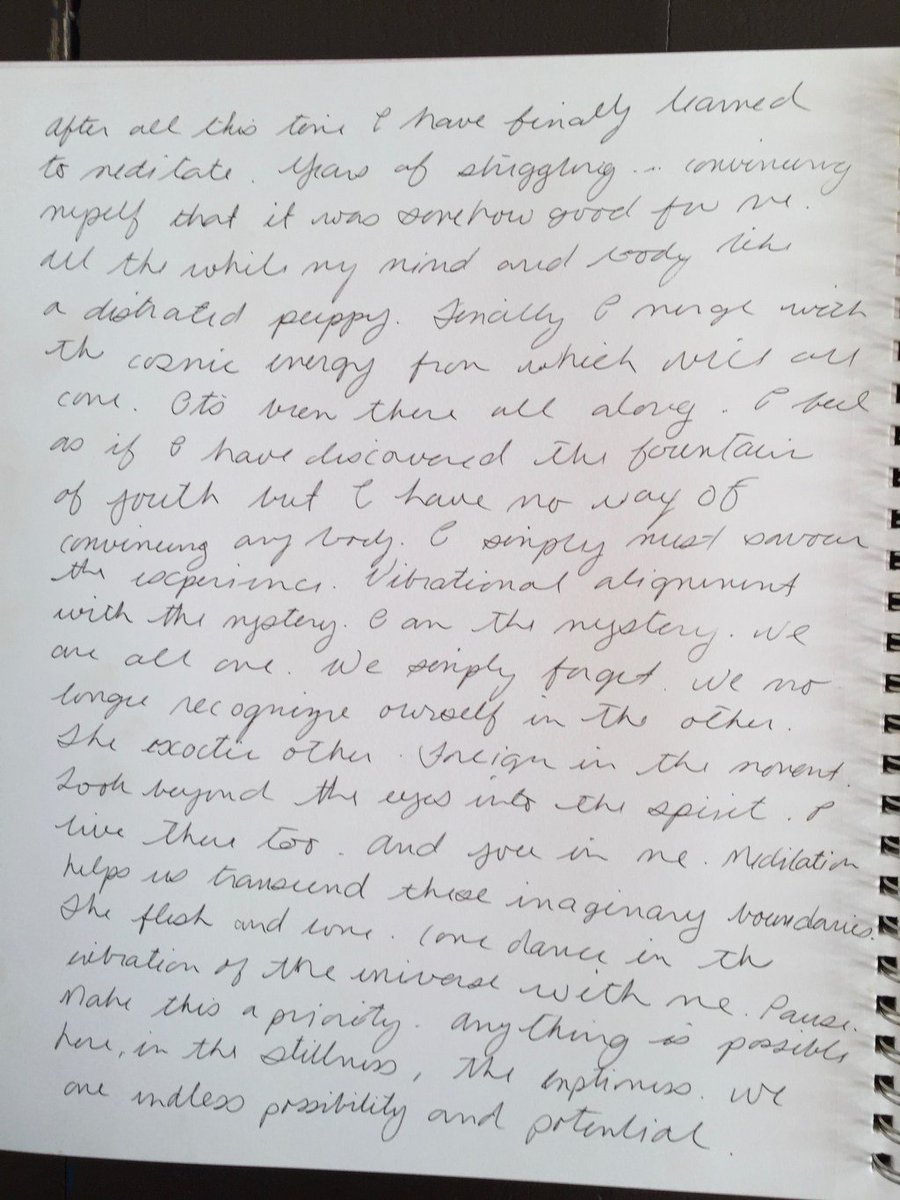 After all this time I have finally learned
to meditate. Years of struggling... convincing
myself that it was somehow good for me.
All the while my mind and body like
a distrated puppy. Finally I merge with
the cosmic energy from which we all
come. It's been there all along. I feel
as if I have discovered the fountain
of youth but I have no way of
convincing any body. I simply must savour
the experience. Vibrational alignment
with the mystery. I am the mystery. We
are all one. We simply forget. We no
longer recognize ourself in the other.
The exoctic other. Foreign in the moment.
Look beyond the eyes into the spirit. I
live there too. And you in me. Meditation
helps us transcend these imaginary boundaries.
The flesh and bone. Come dance in the
vibration of the universe with me. Pause.
Make this a priority. Anything is possible
here, in the stillness, the emptiness. We
are endless possibility and potential.